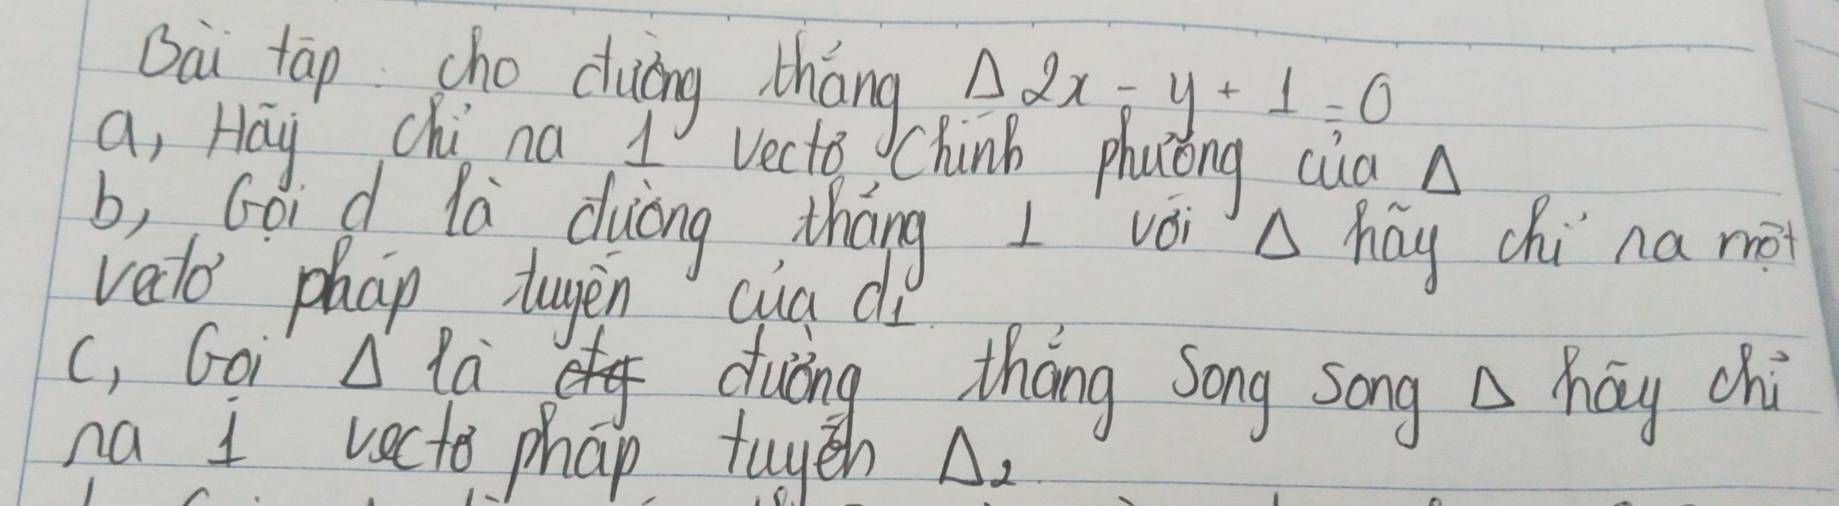 Bài tập. cho đường thẳng Δ 2x - y + 1 = 0
a, Hãy chỉ na 1 vectơ chỉnh phương của Δ
b, Gọi d là đường thẳng ⊥ với Δ hãy chỉ na một
vectơ pháp tuyến của d1.
c, Gọi Δ là đường thẳng song song Δ hãy chỉ
na 1 vectơ pháp tuyến Δ2.